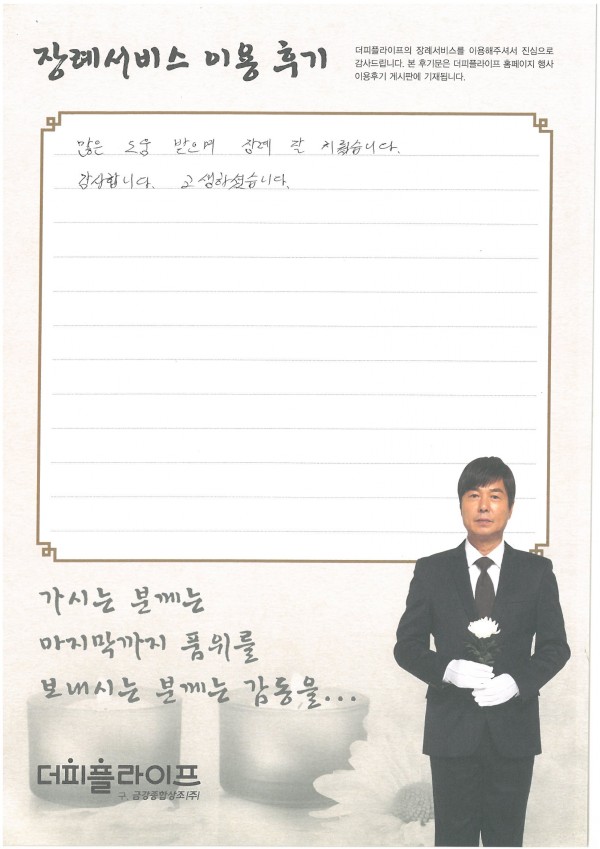 장례서비스 이용 후기
더피플라이프의 장례서비스를 이용해주셔서 진심으로
감사드립니다. 본 후기문은 더피플라이프 홈페이지 행사
이용후기 게시판에 기재됩니다.
많은 도움 받으며 장례 잘 치뤘습니다.
감사합니다. 고생하셨습니다.
가시는 분께는
마지막까지 품위를
보내시는 분께는 감동을...
더피플라이프
구. 금강종합상조(주)